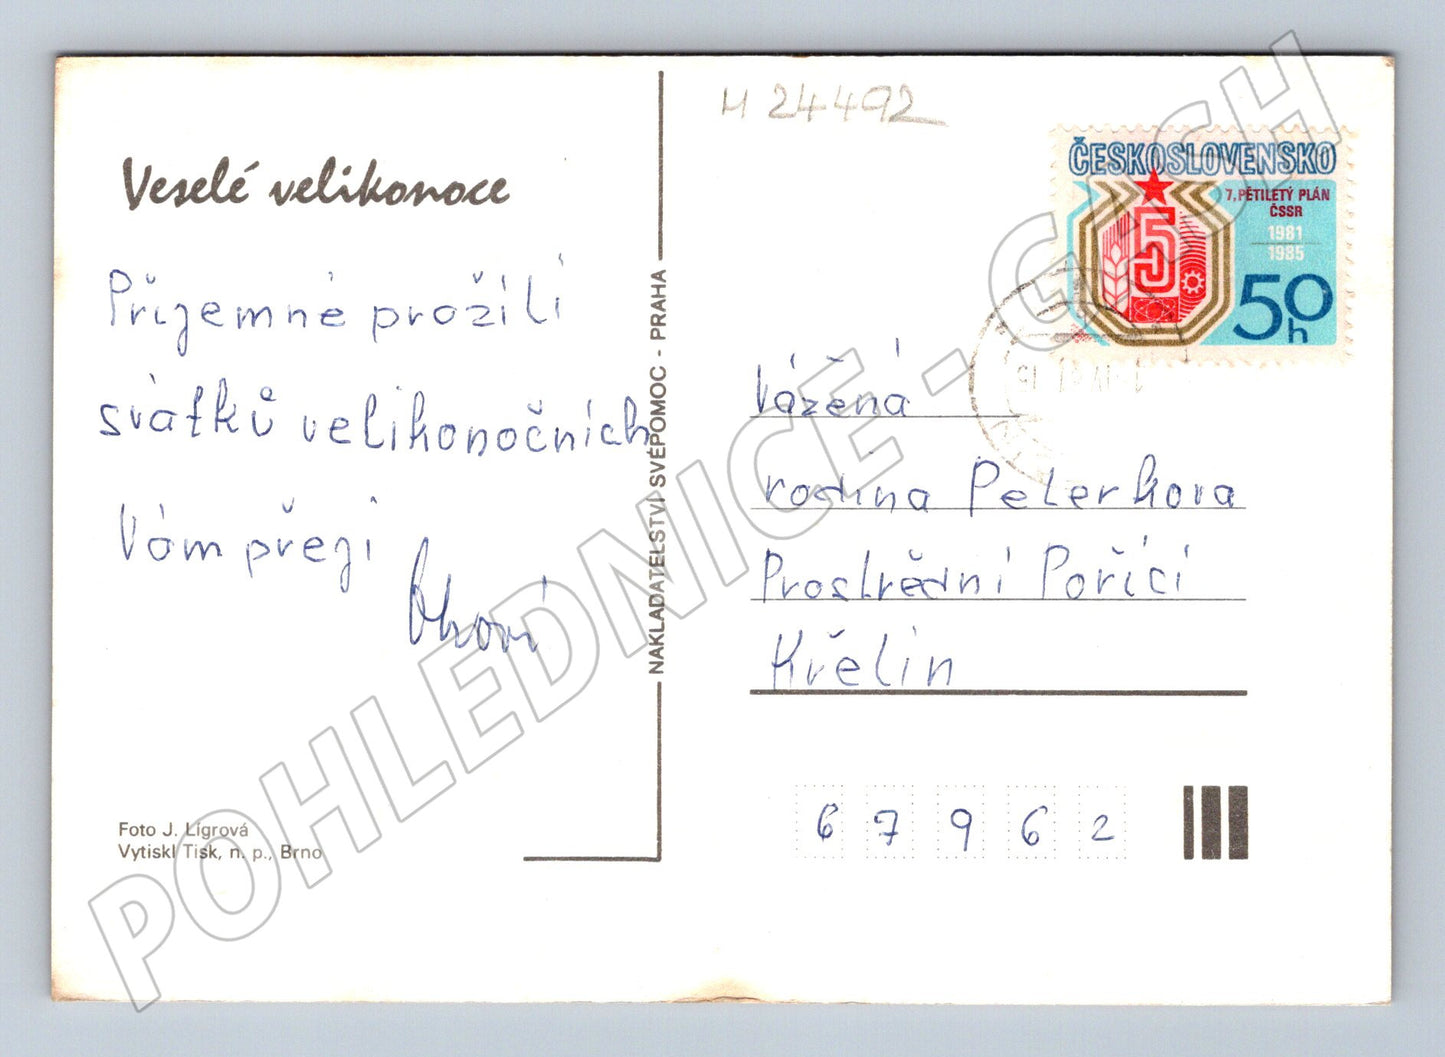 M 24492
Veselé velikonoce
Příjemné prožití
svátků velikonočních
Vám přejí
NAKLADATELSTVÍ SVÉPOMOC - PRAHA
Foto J. Lígrová
Vytiskl Tisk, n. p., Brno
ČESKOSLOVENSKO
7. PĚTILETÝ PLÁN
ČSSR
1981
1985
5
50
h
Vážená
rodina Peterkova
Prostřední Poříčí
Křetín
6 7 9 6 2
POHLEDNICE - GASH